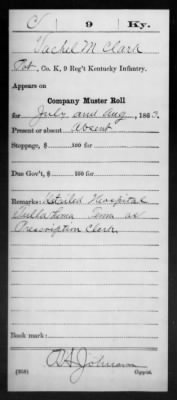 C | 9 | Ky.
Vachel M Clark
Pvt., Co. K, 9 Reg't Kentucky Infantry.
Appears on
Company Muster Roll
for July and Aug, 1863.
Present or absent Absent
Stoppage, $ 100 for
Due Gov't, $ 100 for
Remarks: Detailed Hospital
Tullahoma Tenn as
Prescription Clerk
Book mark:
(358) Copyist.